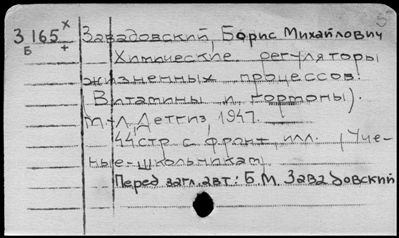 3165 x Завадовский, Борис Михайлович
Б +
Химические регуляторы
жизненных процессов.
(Витамины и гормоны).
М-Л, Детгиз, 1947.
44 стр. с фронт., илл. (Уче-
ные-школьникам)
Перед загл. авт.: Б.М. Завадовский